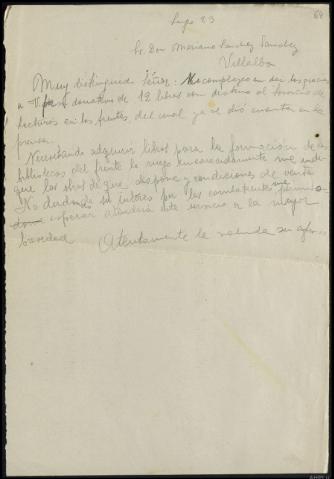 64
Lugo 23
Sr. Don Mariano Sanchez Sanchez
Villalba
Muy distinguido Señor: Me complazco en dar las gracias
a V. por el donativo de 12 libros con destino al servicio de
lecturas en los frentes del cual ya se dió cuenta en la
prensa.
Necesitando adquirir libros para la formación de
bibliotecas del frente le ruego encarecidamente me indi-
que las obras de que dispone y condiciones de venta
No dudando su interes por los combatientes me permi-
esperar atenderá este servicio a la mayor
brevedad Atentamente le saluda su afmo